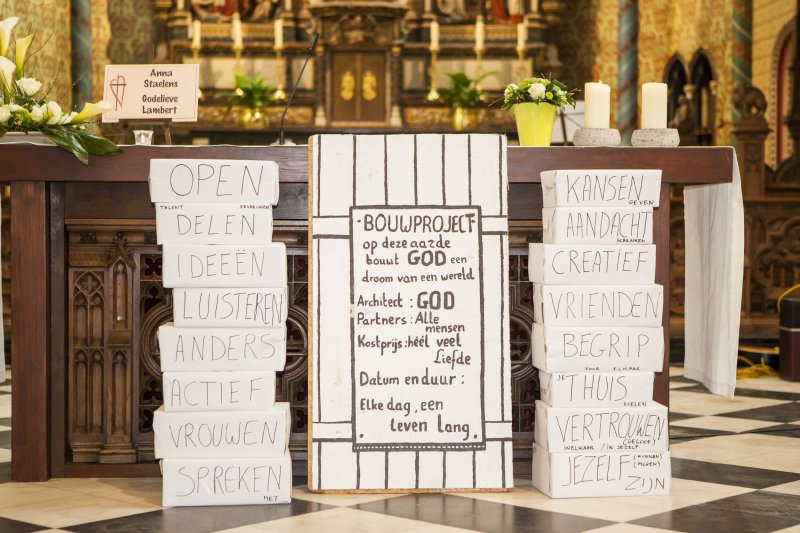 Anna
Staelens
Godelieve
Lambert
OPEN
TALENT ERVARINGEN
DELEN
IDEEËN
LUISTEREN
ANDERS
ACTIEF
VROUWEN
SPREKEN
MET
BOUWPROJECT
op deze aarde
bouwt GOD een
droom van een wereld
Architect : GOD
Partners : Alle
mensen
Kostprijs : héél veel
Liefde
Datum en duur :
Elke dag, een
leven lang.
KANSEN
GEVEN
AANDACHT
SCHENKEN
CREATIEF
VRIENDEN
BEGRIP
VOOR ELKAAR
JE THUIS
VOELEN
VERTROUWEN
(GELOOF)
IN ELKAAR / IN JEZELF
JEZELF (KUNNEN)
(MOGEN)
ZIJN